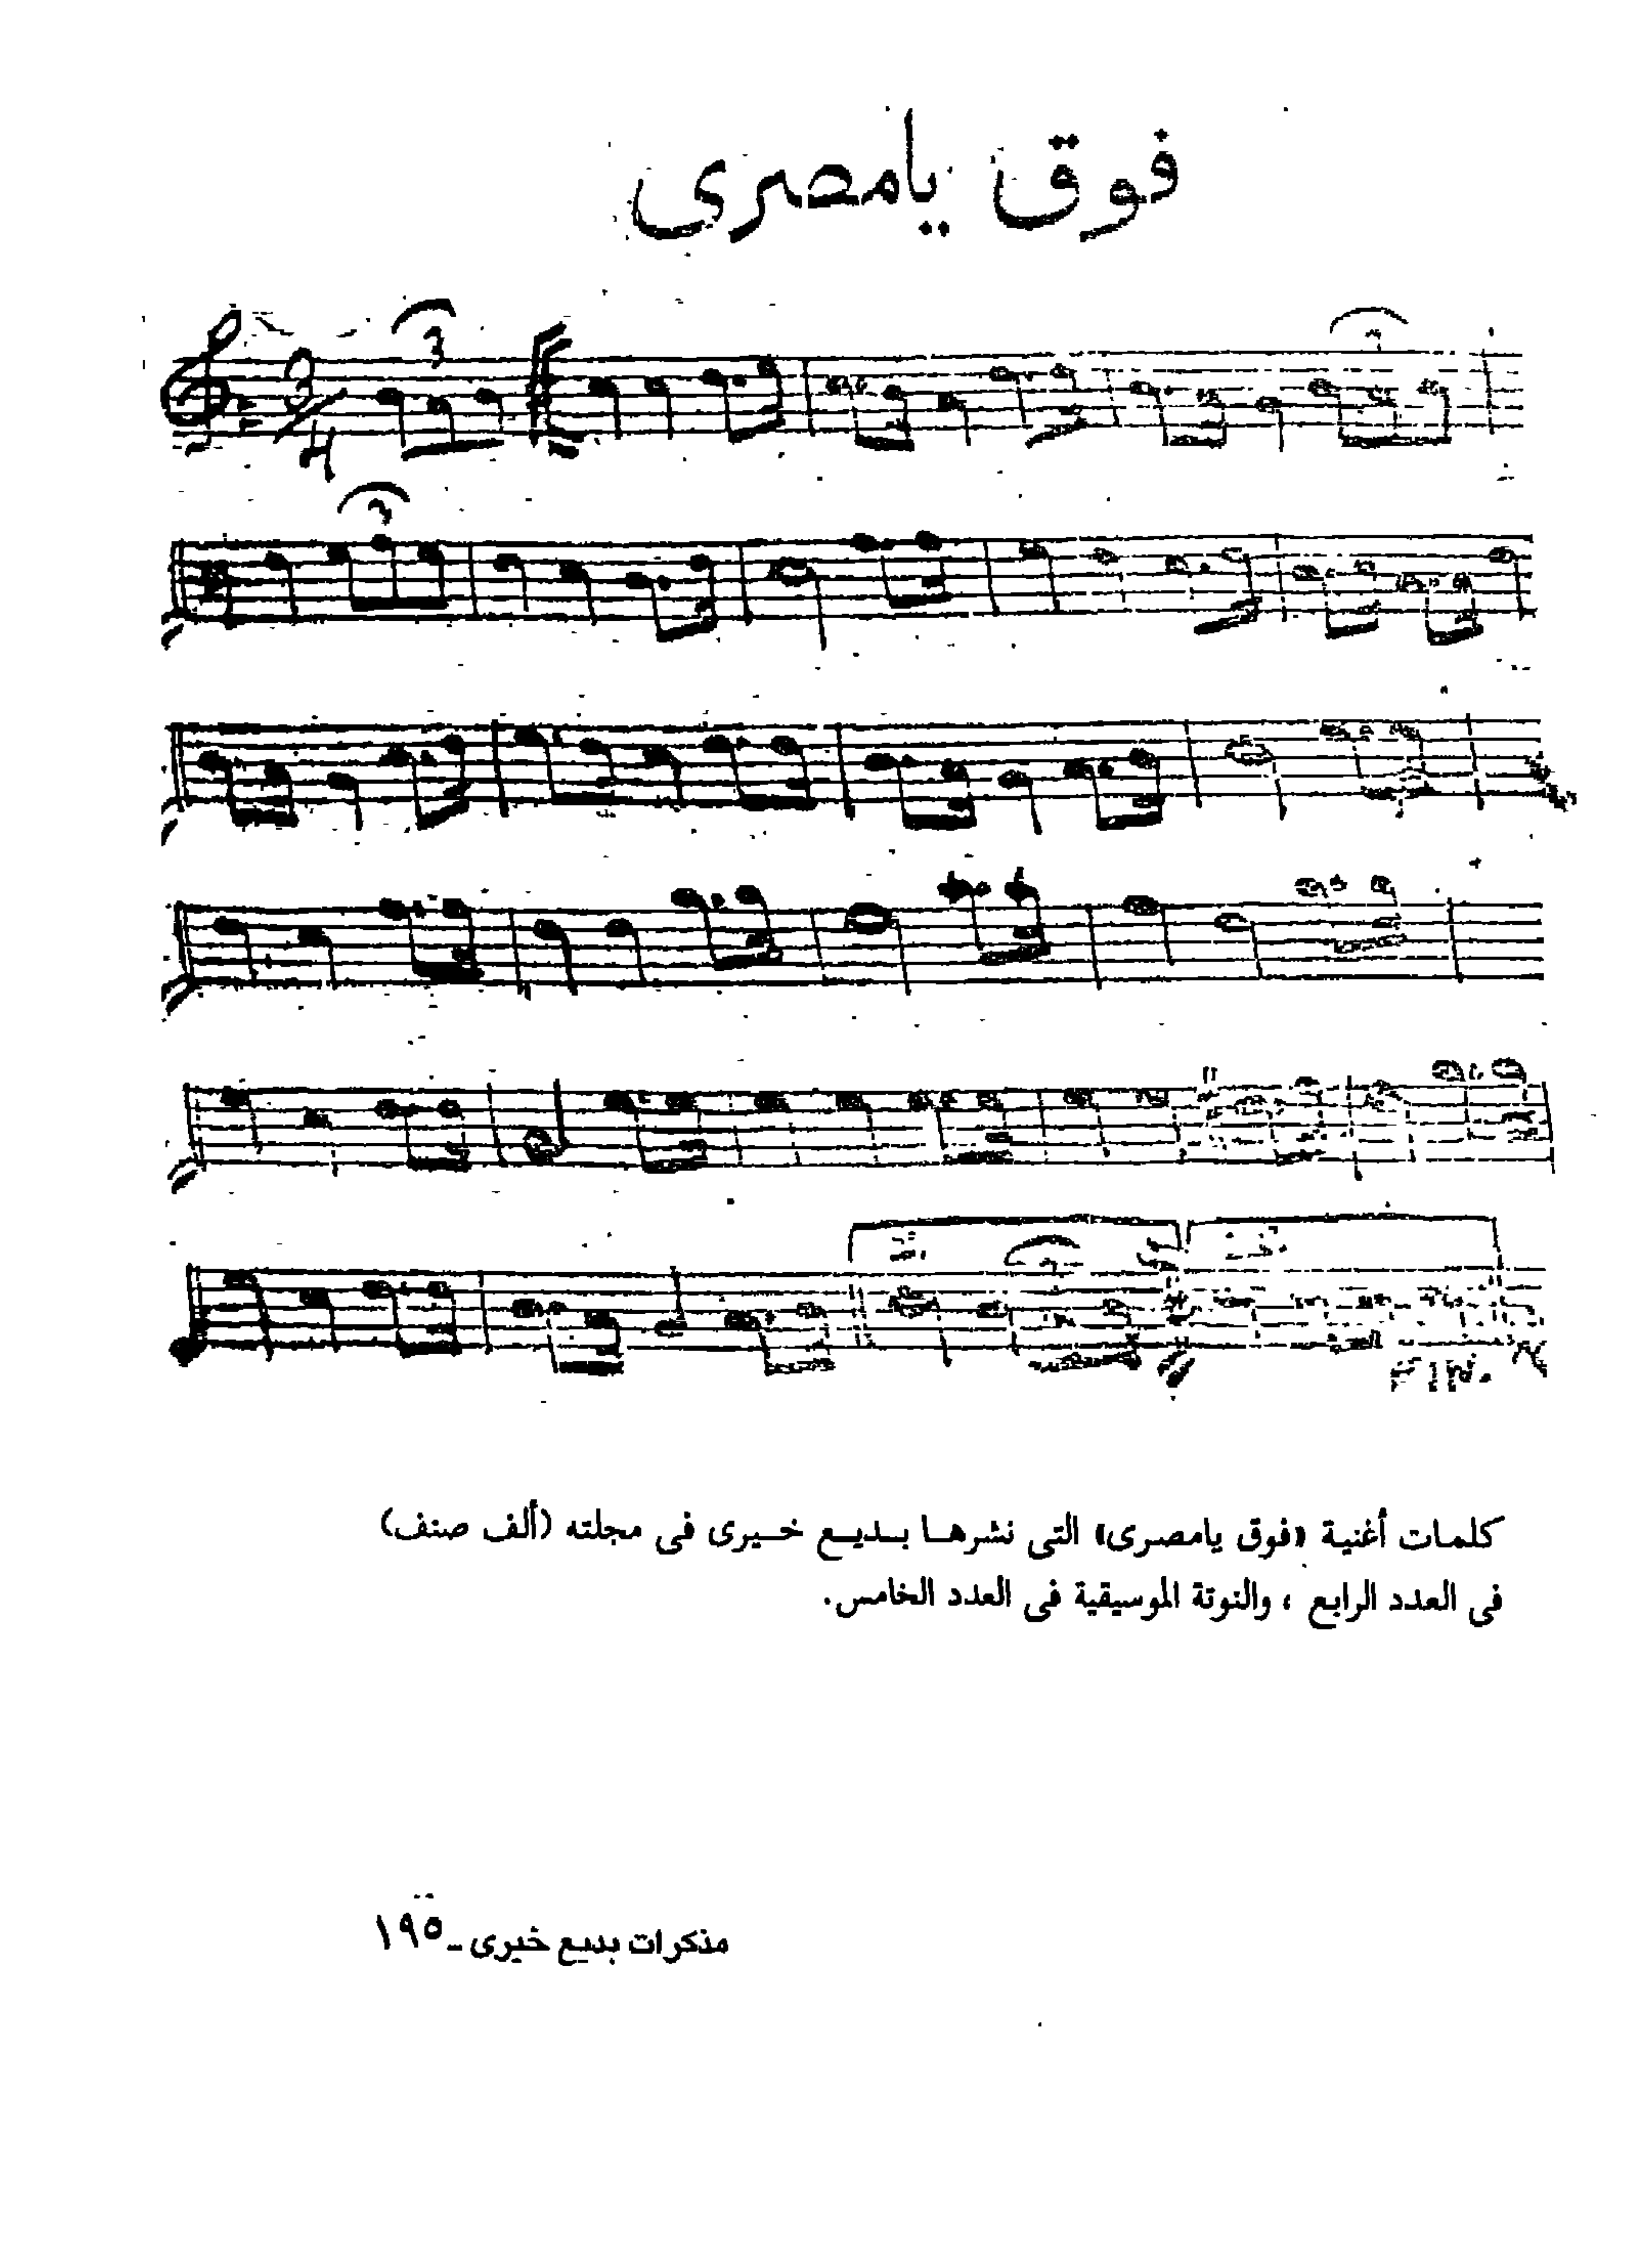 فوق يامصرى
3
3
4
3
FIN.
كلمات أغنية «فوق يامصرى» التى نشرهـا بـديـع خـيرى فى مجلته (ألف صنف)
فى العدد الرابع ، والنوتة الموسيقية فى العدد الخامس.
مذكرات بديع خيرى ـ ١٩٥